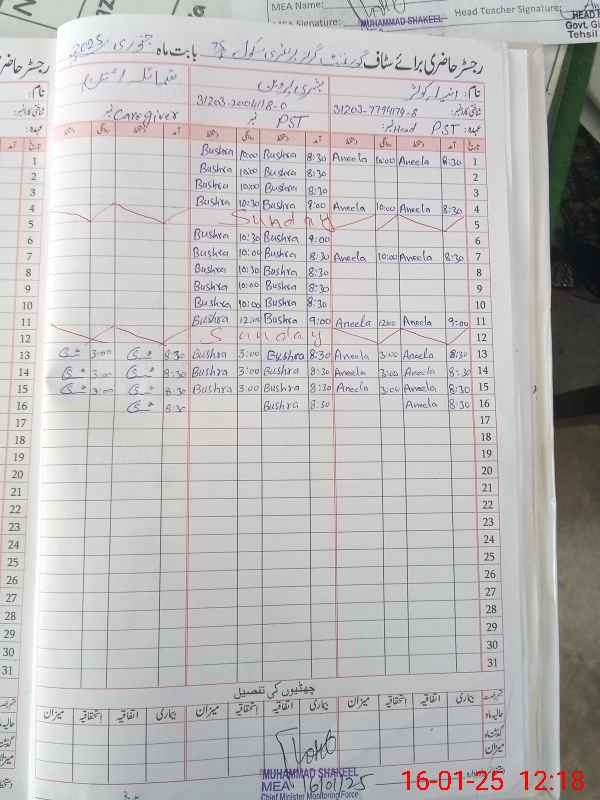 MEA Name:
MEA Signature:
MUHAMMAD SHAKEEL
Head Teacher Signature:
HEAD
Govt. Gi
Tehsil
رجسٹر حاضری برائے سٹاف گورنمنٹ گرلز پرائمری سکول بابت ماہ جنوری 2025
نام:
شناختی کارڈ نمبر: 31203-7794179-8 31203-2004118-0
عہدہ: PST Head نمبر PST نمبر Caregiver نمبر
تاریخ آمد دستخط روانگی دستخط آمد دستخط روانگی دستخط آمد دستخط روانگی دستخط
Bushra 10:00 Bushra 8:30 Aneela 10:00 Aneela 8:30 1
Bushra 10:00 Bushra 8:30 2
Bushra 10:00 Bushra 8:30 3
Bushra 10:30 Bushra 8:00 Aneela 10:00 Aneela 8:30 4
Sunday 5
Bushra 10:30 Bushra 9:00 6
Bushra 10:00 Bushra 8:30 Aneela 10:00 Aneela 8:30 7
Bushra 10:30 Bushra 8:30 8
Bushra 10:00 Bushra 8:30 9
Bushra 10:00 Bushra 8:30 10
Bushra 12:00 Bushra 9:00 Aneela 12:00 Aneela 9:00 11
Sunday 12
3:00 8:30 Bushra 3:00 Bushra 8:30 Aneela 3:00 Aneela 8:30 13
3:00 8:30 Bushra 3:00 Bushra 8:30 Aneela 3:00 Aneela 8:30 14
3:00 8:30 Bushra 3:00 Bushra 8:30 Aneela 3:00 Aneela 8:30 15
8:30 Bushra 8:30 Aneela 8:30 16
17
18
19
20
21
22
23
24
25
26
27
28
29
30
31
چھٹیوں کی تفصیل
بیماری اتفاقیہ استحقاقیہ میزان بیماری اتفاقیہ استحقاقیہ میزان بیماری اتفاقیہ استحقاقیہ میزان
حالیہ ماہ
میزان
MUHAMMAD SHAKEEL
MEA 16/01/25
Chief Minister Monitoring Force
16-01-25 12:18